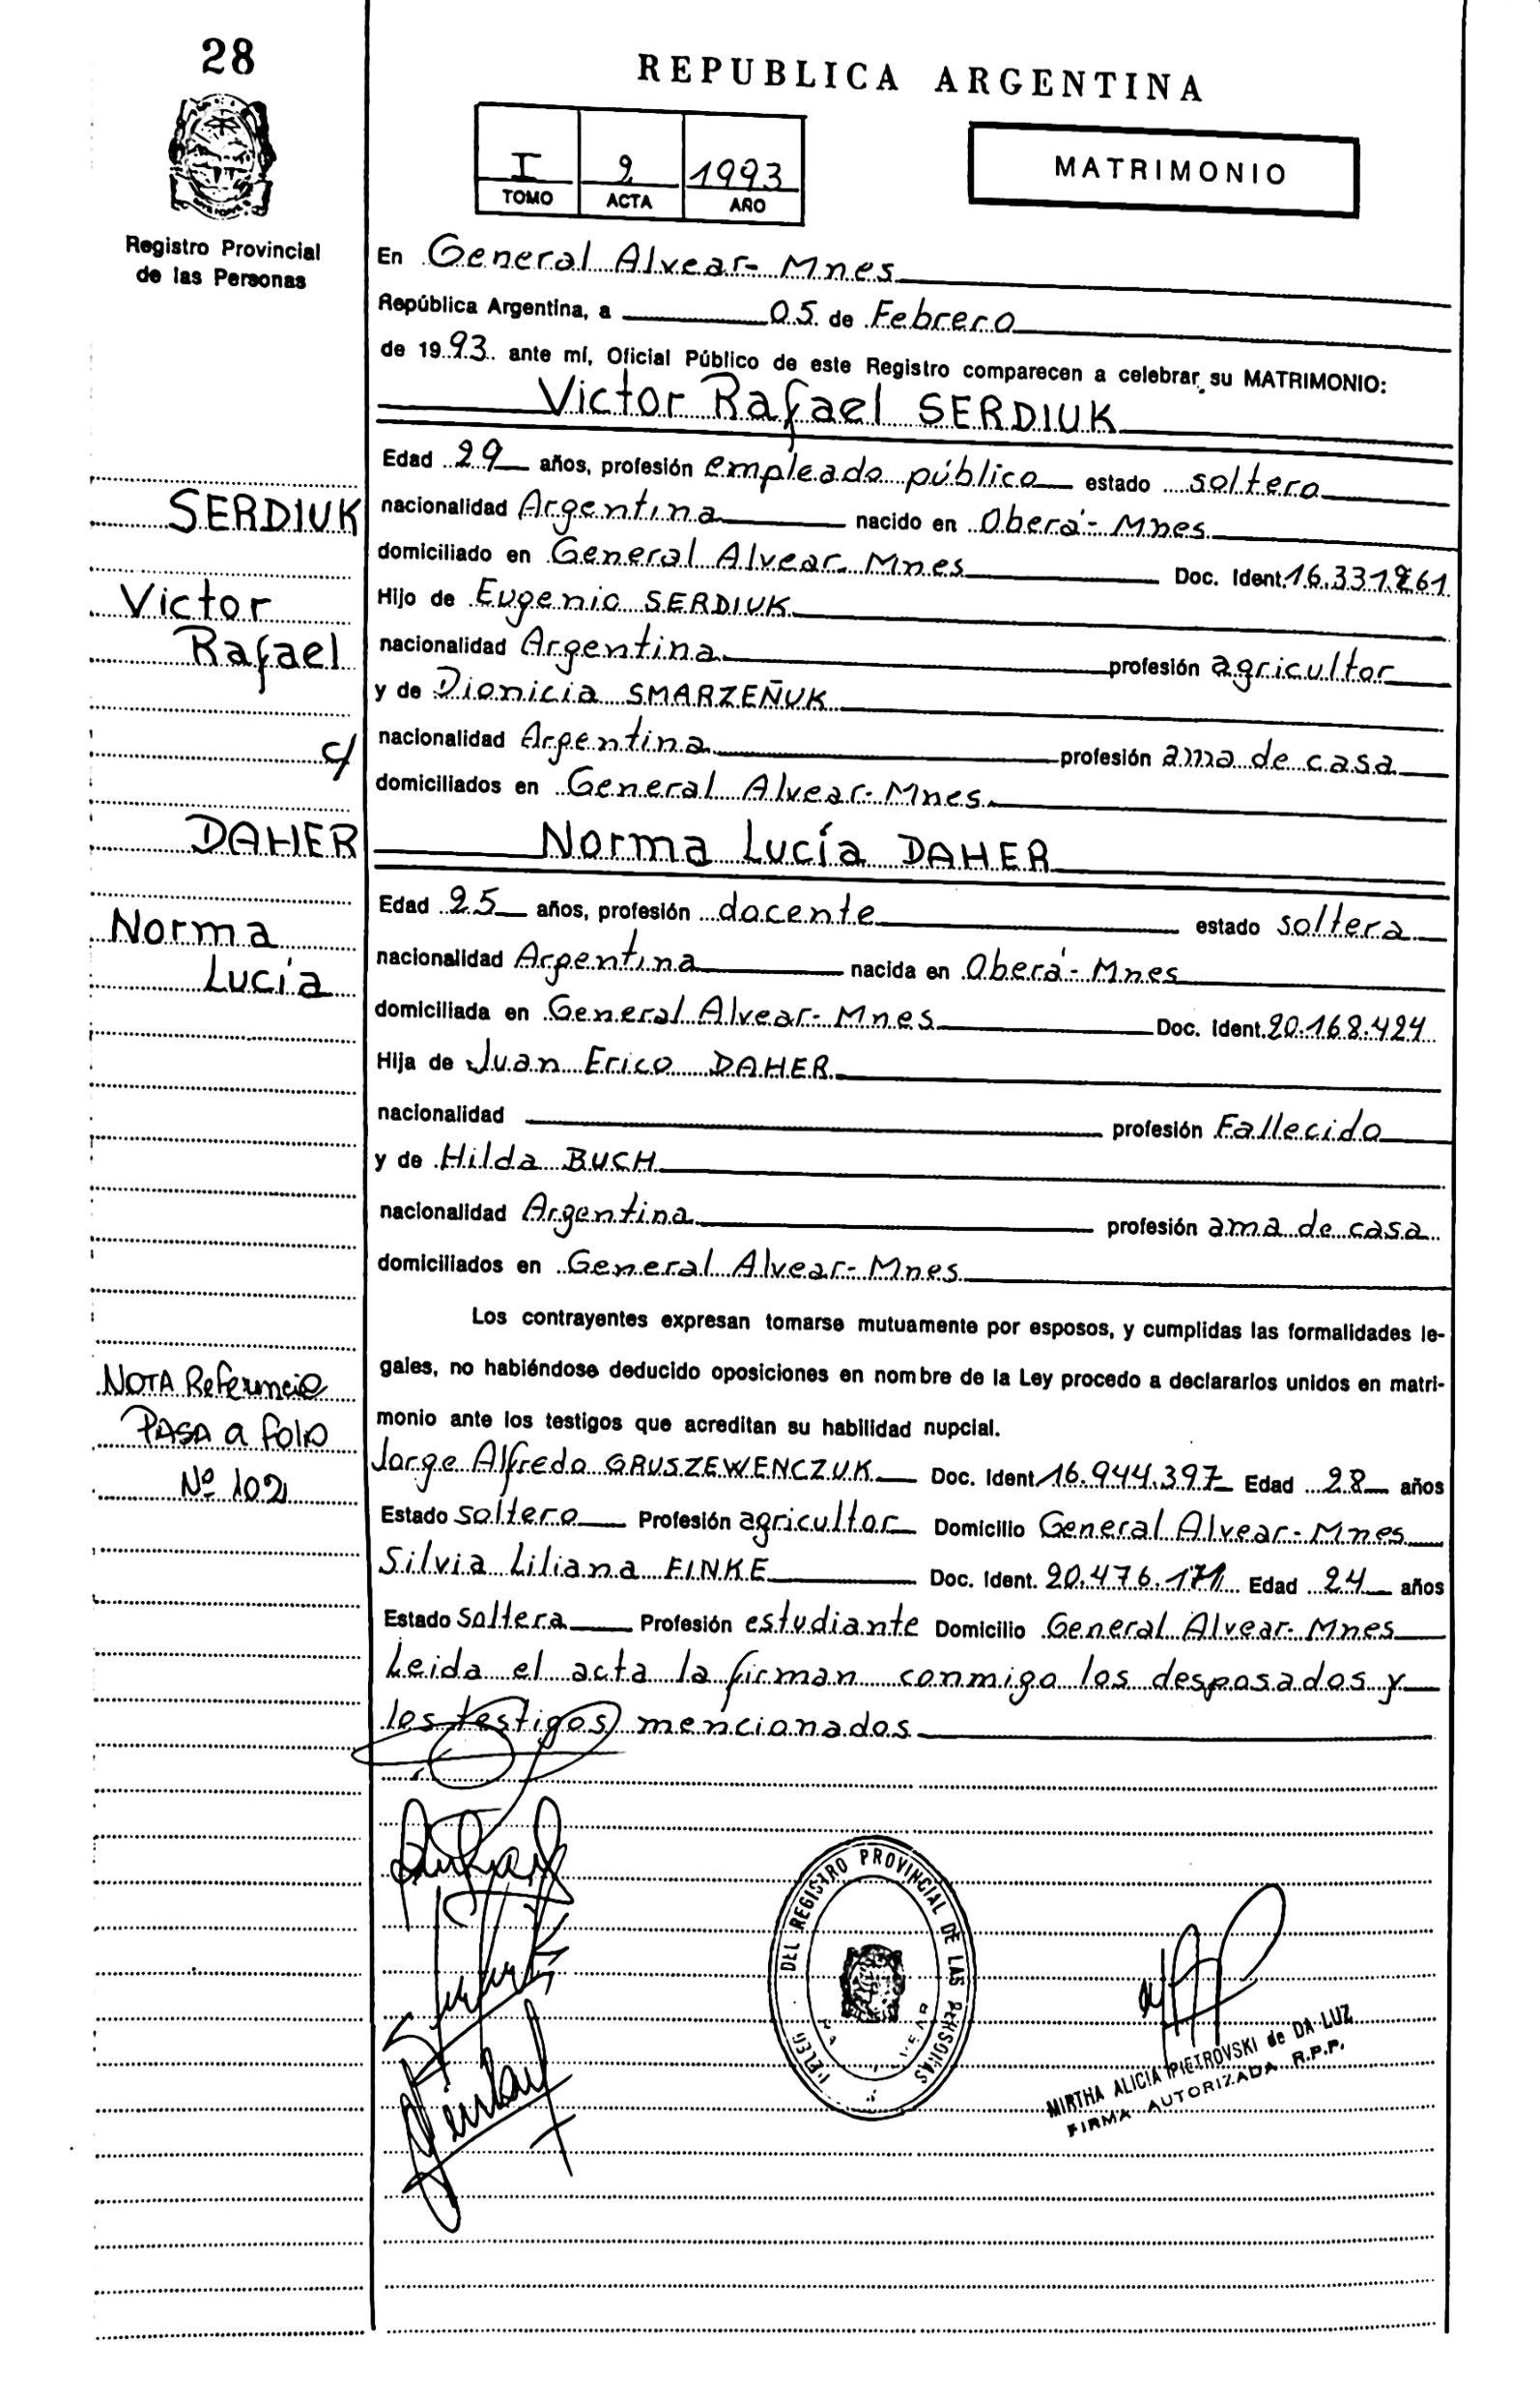 28
REPUBLICA ARGENTINA
I 2 1993
TOMO ACTA AÑO
MATRIMONIO
Registro Provincial
de las Personas
En General Alvear - Mnes
República Argentina, a 05 de Febrero
de 1993 ante mí, Oficial Público de este Registro comparecen a celebrar su MATRIMONIO:
Victor Rafael SERDIUK
Edad 29 años, profesión empleado público estado soltero
SERDIUK
nacionalidad Argentina nacido en Oberá - Mnes
domiciliado en General Alvear - Mnes Doc. Ident.
Victor
Hijo de Eugenio SERDIUK
Rafael
nacionalidad Argentina profesión agricultor
y de Dionicia SMARZEÑUK
c/
nacionalidad Argentina profesión ama de casa
domiciliados en General Alvear - Mnes
DAHER
Norma Lucía DAHER
Edad 25 años, profesión docente estado soltera
Norma
nacionalidad Argentina nacida en Oberá - Mnes
Lucía
domiciliada en General Alvear - Mnes Doc. Ident. 20.168.424
Hija de Juan Erico DAHER
nacionalidad profesión Fallecido
y de Hilda BUCH
nacionalidad Argentina profesión ama de casa
domiciliados en General Alvear - Mnes
Los contrayentes expresan tomarse mutuamente por esposos, y cumplidas las formalidades le-
gales, no habiéndose deducido oposiciones en nombre de la Ley procedo a declararlos unidos en matri-
monio ante los testigos que acreditan su habilidad nupcial.
NOTA Referencia
PASA a folio
Nº 102
Jorge Alfredo GRUSZEWENCZUK Doc. Ident. 16.944.397 Edad 28 años
Estado soltero Profesión agricultor Domicilio General Alvear - Mnes
Silvia Liliana FINKE Doc. Ident. 20.476.171 Edad 24 años
Estado soltera Profesión estudiante Domicilio General Alvear - Mnes
Leida el acta la firman conmigo los desposados y
los testigos mencionados
DEL REGISTRO PROVINCIAL DE LAS PERSONAS
MIRTHA ALICIA PIETROVSKI de DA LUZ
FIRMA AUTORIZADA R.P.P.